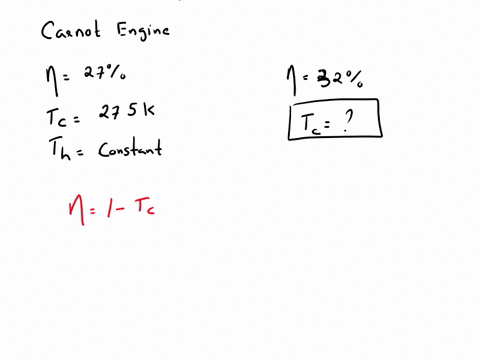 Carnot Engine
η = 27%
Tc = 275 K
Th = Constant
η = 32%
Tc = ?
η = 1 - Tc